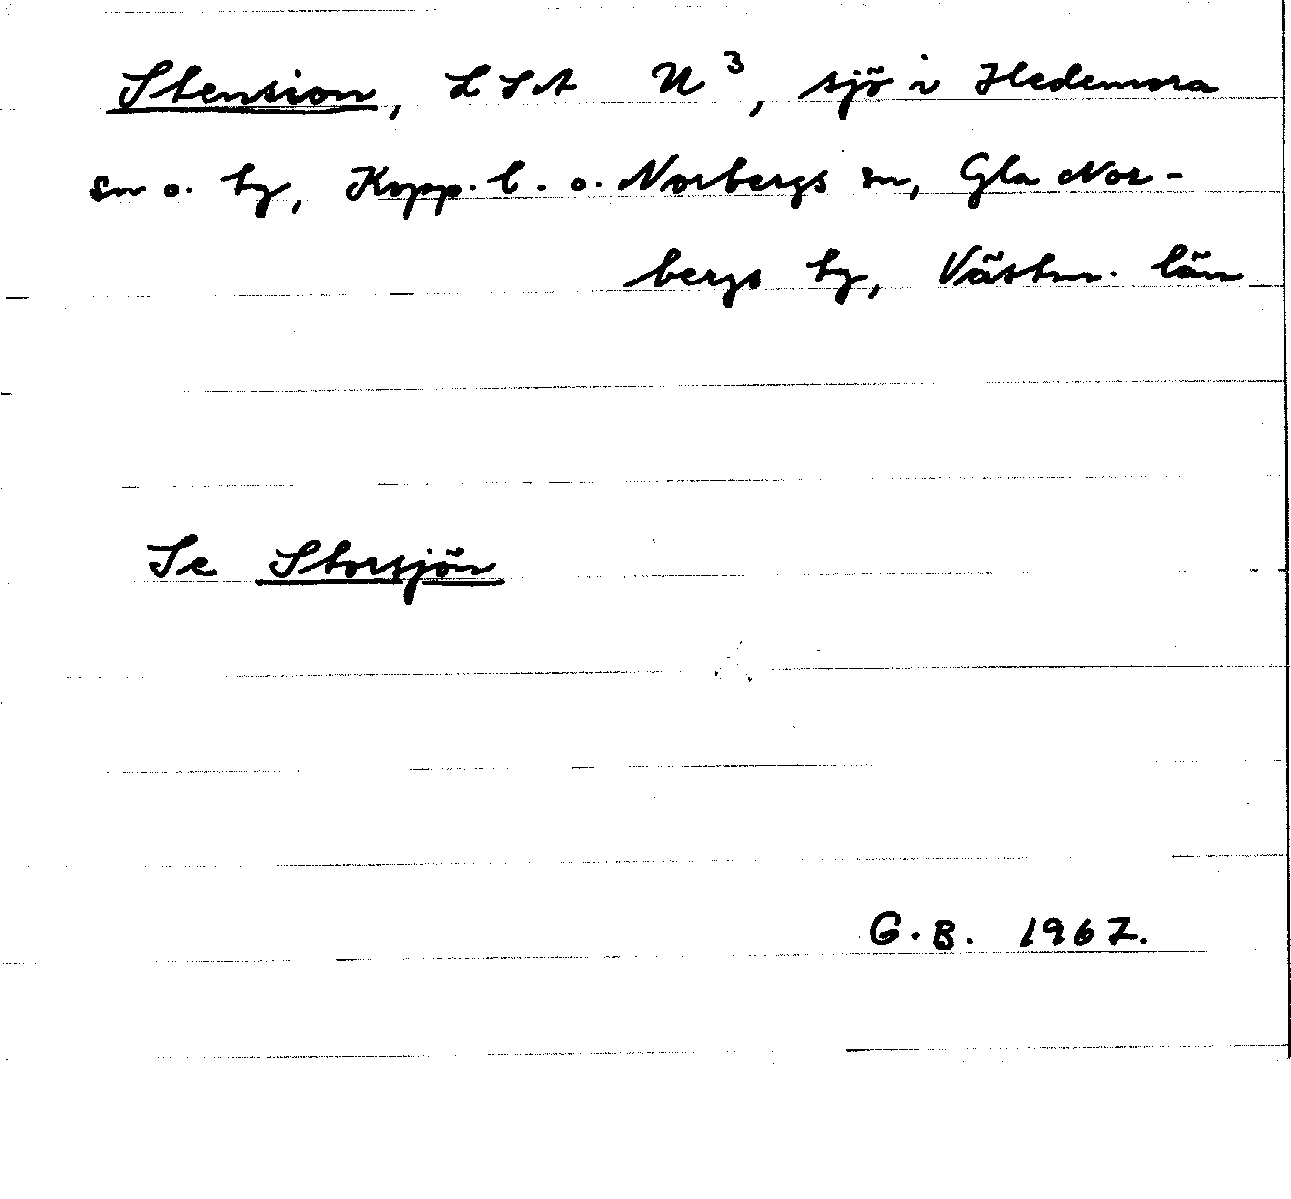 Stension, LSA U³, sjö i Hedemora
sn o. hg, Kopp. l. o. Norbergs sn, Gla Nor-
bergs hg, Västm. län
Se Storsjön
G.B. 1967.